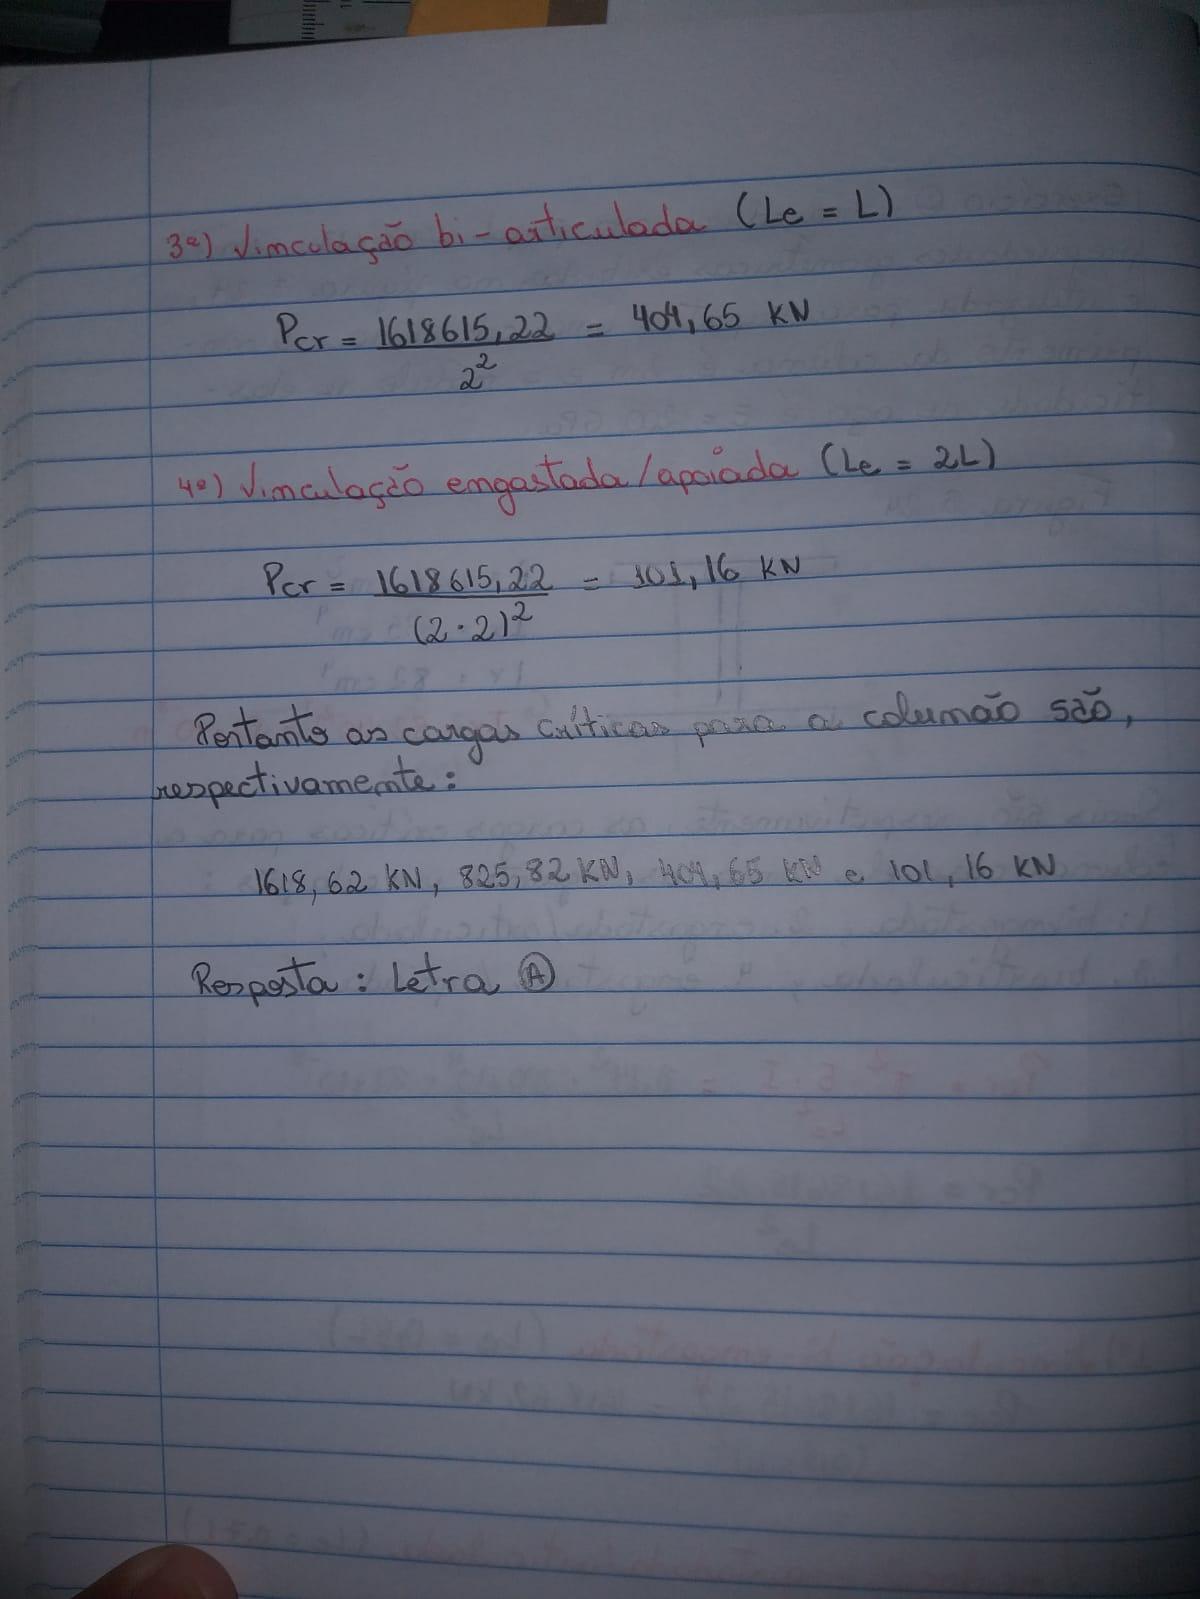 3º) Vinculação bi-articulada (Le = L)
Pcr = 1618615,22 = 404,65 KN
2²
4º) Vinculação engastada/apoiada (Le = 2L)
Pcr = 1618615,22 = 101,16 KN
(2·2)²
Portanto as cargas críticas para a colunão são,
respectivamente:
1618,62 KN, 825,82 KN, 404,65 KN e 101,16 KN
Resposta: Letra A